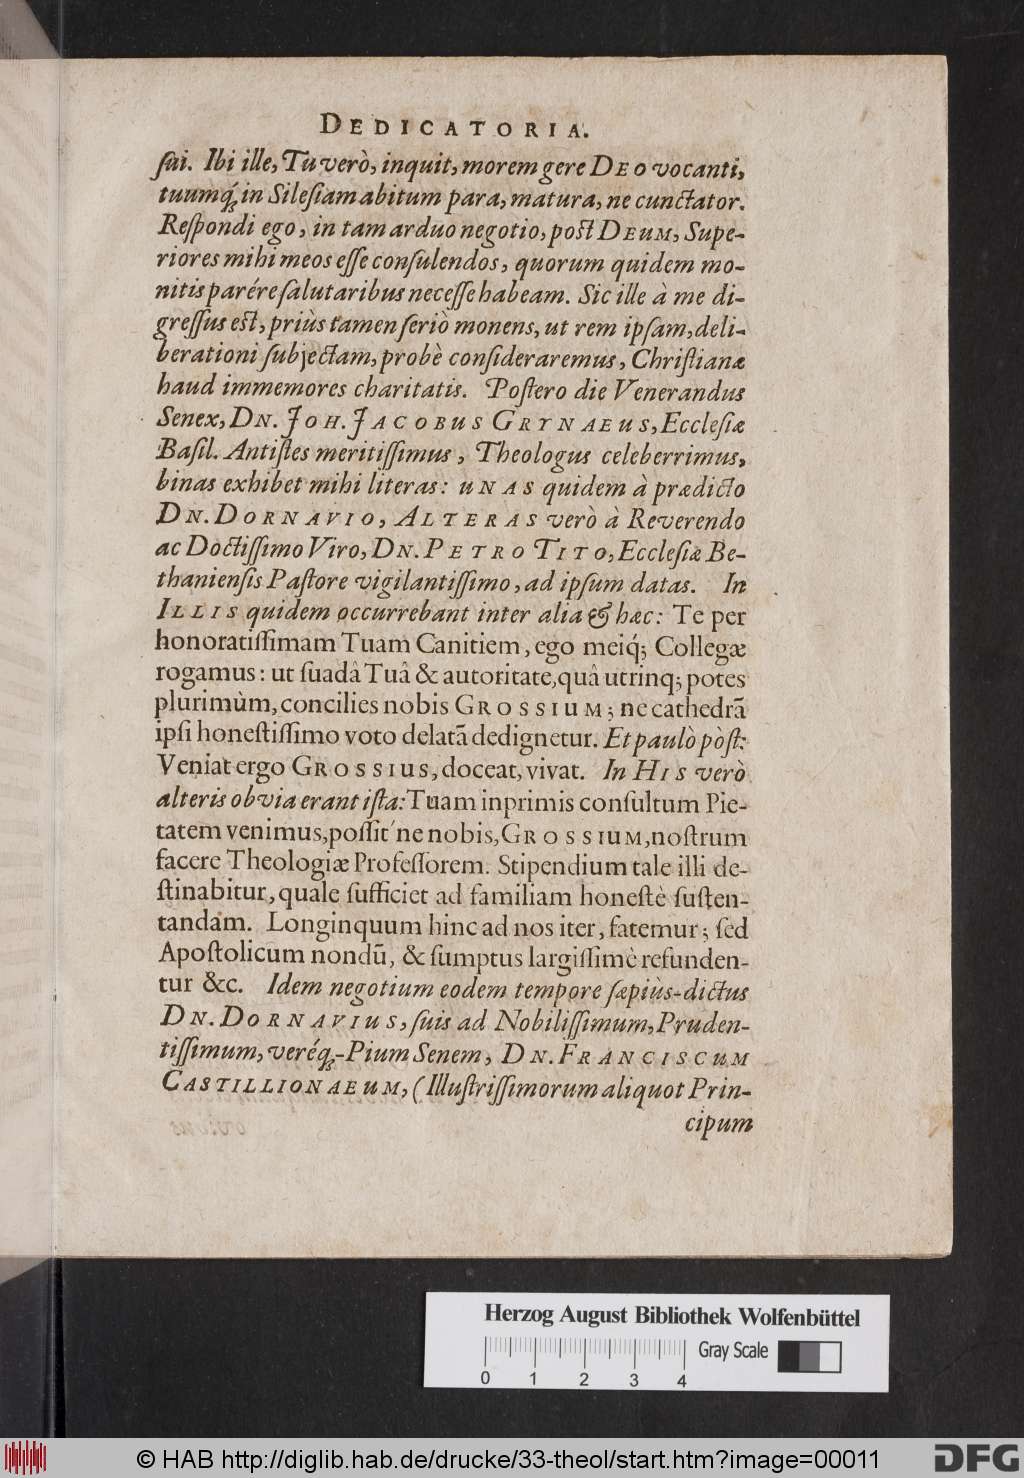 DEDICATORIA.
ſui. Ibi ille, Tu verò, inquit, morem gere DEO vocanti,
tuumq́; in Sileſiam abitum para, matura, ne cunctator.
Reſpondi ego, in tam arduo negotio, poſt DEUM, Supe-
riores mihi meos eſſe conſulendos, quorum quidem mo-
nitis parére ſalutaribus neceſſe habeam. Sic ille à me di-
greſſus eſt, priùs tamen ſeriò monens, ut rem ipſam, deli-
berationi ſubjectam, probè conſideraremus, Chriſtianæ
haud immemores charitatis. Poſtero die Venerandus
Senex, DN. JOH. JACOBUS GRYNAEUS, Eccleſiæ
Baſil. Antiſtes meritiſſimus, Theologus celeberrimus,
binas exhibet mihi literas: UNAS quidem à prædicto
DN. DORNAVIO, ALTERAS verò à Reverendo
ac Doctiſſimo Viro, DN. PETRO TITO, Eccleſiæ Be-
thanienſis Paſtore vigilantiſſimo, ad ipſum datas. In
ILLIS quidem occurrebant inter alia & hæc: Te per
honoratiſſimam Tuam Canitiem, ego meiq́; Collegæ
rogamus: ut ſuadâ Tuâ & autoritate, quâ utrinq; potes
plurimùm, concilies nobis GROSSIUM; ne cathedrã
ipſi honeſtiſſimo voto delatã dedignetur. Et paulò pòſt:
Veniat ergo GROSSIUS, doceat, vivat. In HIS verò
alteris obvia erant iſta: Tuam inprimis conſultum Pie-
tatem venimus, poſſit´ne nobis, GROSSIUM, noſtrum
facere Theologiæ Profeſſorem. Stipendium tale illi de-
ſtinabitur, quale ſufficiet ad familiam honeſtè ſuſten-
tandam. Longinquum hinc ad nos iter, fatemur; ſed
Apoſtolicum nondũ, & ſumptus largiſſimè refunden-
tur &c. Idem negotium eodem tempore ſæpius-dictus
DN. DORNAVIUS, ſuis ad Nobiliſſimum, Pruden-
tiſſimum, veréq;-Pium Senem, DN. FRANCISCUM
CASTILLIONAEUM, (Illuſtriſſimorum aliquot Prin-
cipum
Herzog August Bibliothek Wolfenbüttel
Gray Scale
0 1 2 3 4
© HAB http://diglib.hab.de/drucke/33-theol/start.htm?image=00011
DFG